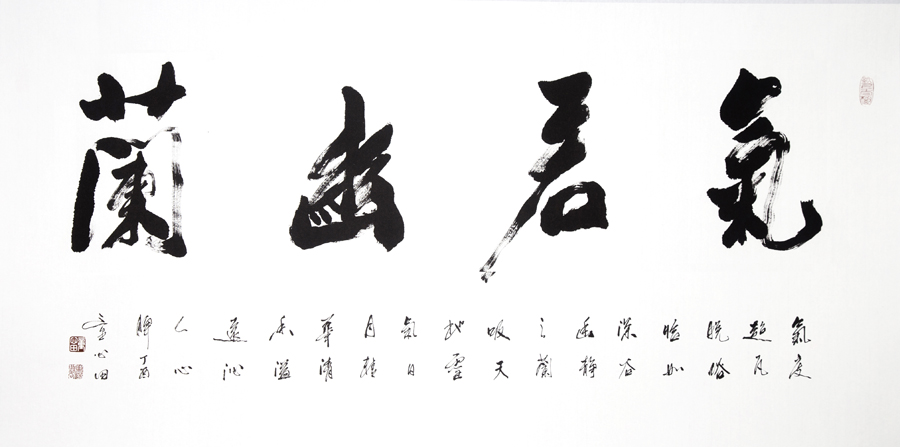 氣若幽蘭
氣度
超凡
脱俗
恰如
深谷
幽静
之蘭
吸天
地靈
氣日
月精
華清
香溢
遠沁
人心
脾丁酉
童心田